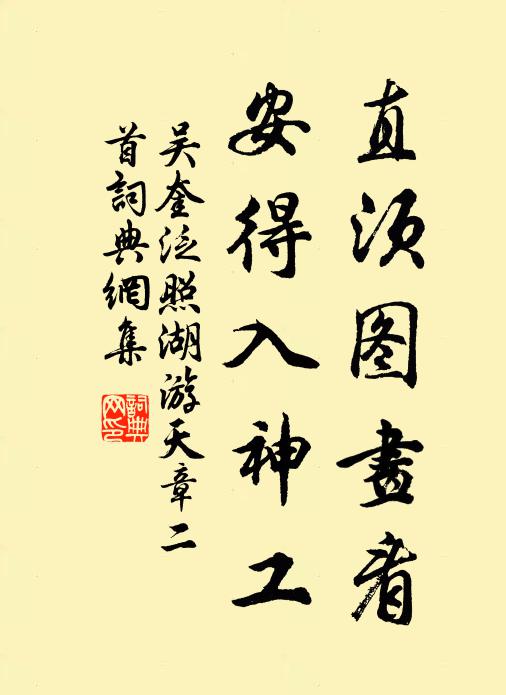 直须图畫看
安得入神工
吴奎泛照湖游天章二
首詞典網集
詞典
网印